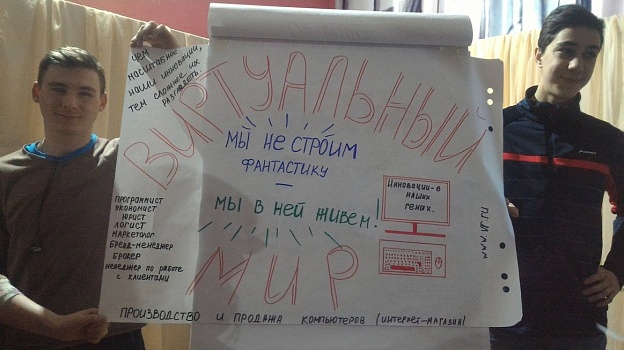 чем
масштабнее
наши инновации,
тем сложнее их
разгадать
ВИРТУАЛЬНЫЙ
МЫ НЕ СТРОИМ
ФАНТАСТИКУ
—
МЫ В НЕЙ ЖИВЁМ!
Инновации-в
наших
генах.
МИР
ПРОГРАММИСТ
ЭКОНОМИСТ
ЮРИСТ
ЛОГИСТ
МАРКЕТОЛОГ
БРЕНД-МЕНЕДЖЕР
БРОКЕР
МЕНЕДЖЕР ПО РАБОТЕ
С КЛИЕНТАМИ
ПРОИЗВОДСТВО И ПРОДАЖА КОМПЬЮТЕРОВ (ИНТЕРНЕТ-МАГАЗИН)